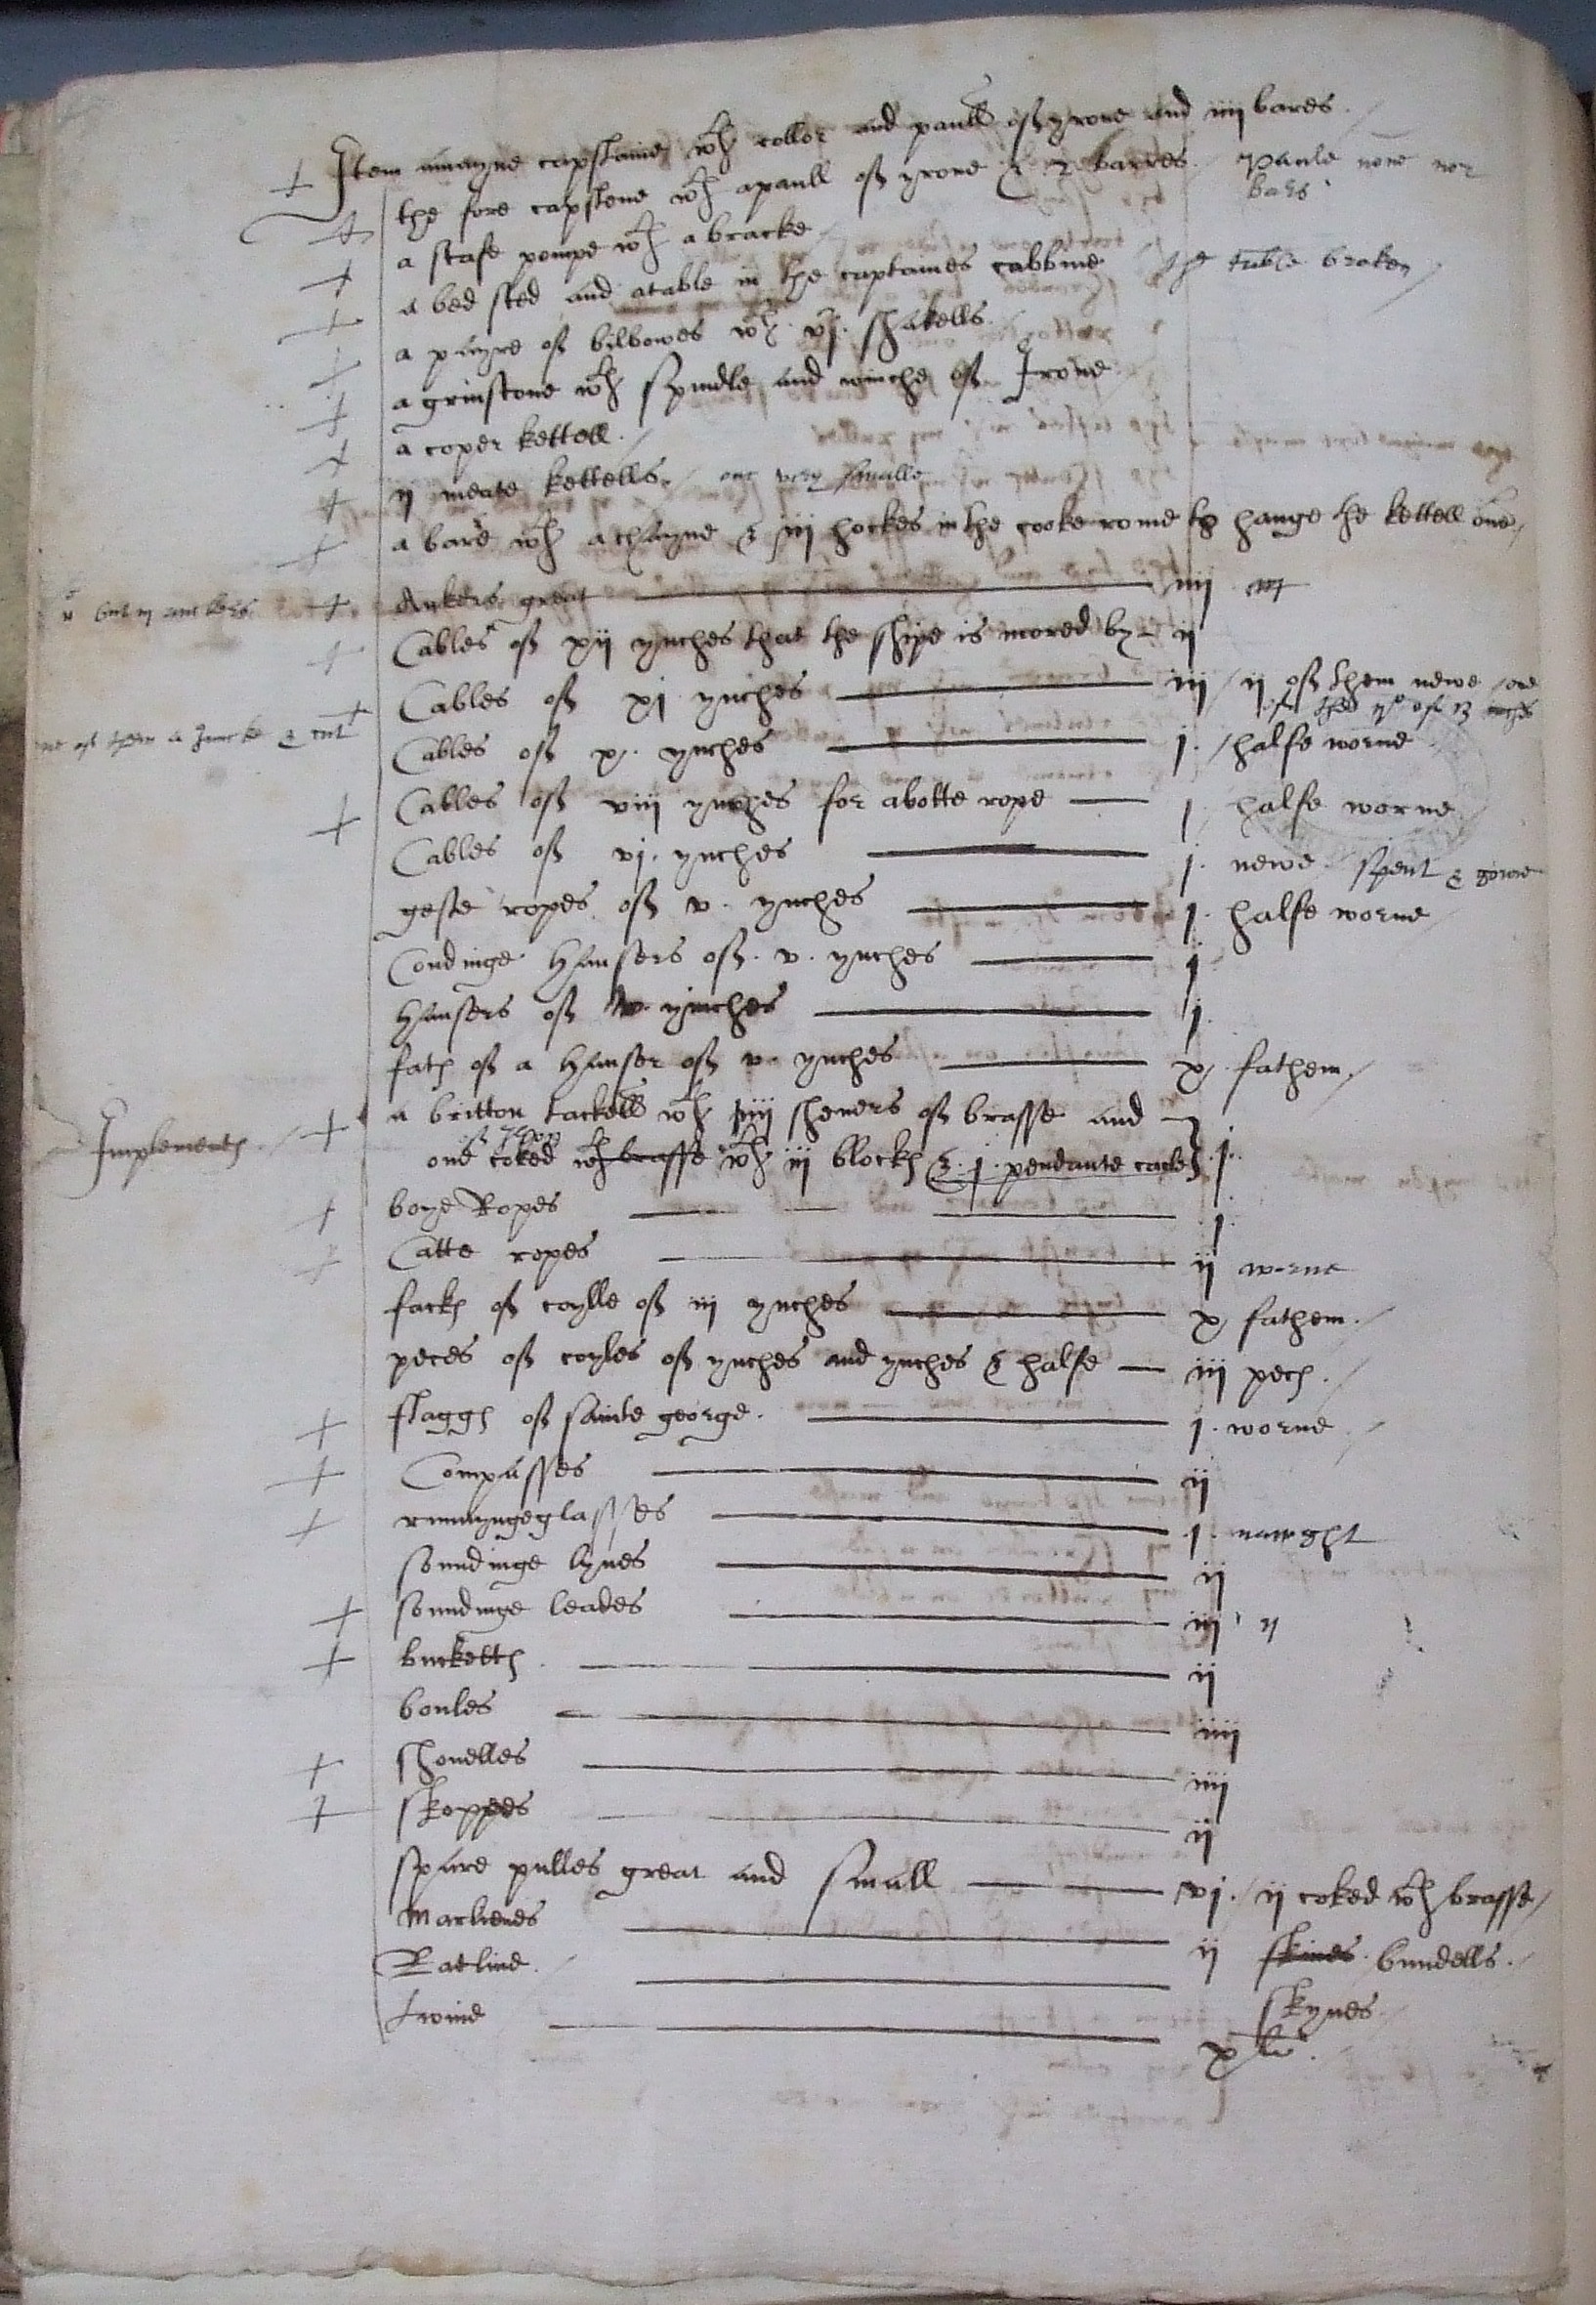 Item amayne capstaine wth coller and paull off yrone and iiij bares
the fore capstene wth apaull off yrone & 2 barres paule none nor
bars
a stafe pompe wth a bracke
a bed sted and atable in the captaines cabbine the table broken
a payre off bilbowes wth vj shakells
a grinstone wth spindle and winche off Irone
a coper kettell
ij meate kettells one very smalle
a bare wth a chayne & iij hockes in the cooke rome to hange the kettell one
but iij anckers Ankers great iiij
Cables off xij ynches that the shipe is mored by ij
Cables off xj ynches iij ij off them newe one
of off 13 inches
of them a Juncke & cut Cables off x ynches j halfe worne
Cables off viij ynches for abotte rope j halfe worne
Cables off vj ynches j newe spent & gonne
geste ropes off v ynches j halfe worne
Condinge Hausers off v ynches j
Hausers off ynches j
fath off a Hauser off v ynches x fathem
Implements a britton tackell wth iiij shevers off brasse and
off yron
one coked wth brasse wth iij blocks & j pendante j
boye Ropes j
Catte ropes ij worne
facks off coylle off iij ynches x fathem
peces off coyles off ynches and ynches & halfe iij peces
flaggs off sainte george j worne
Compasses ij
runnyngeglasses j naught
soundinge lynes ij
soundinge leades iij ij
bucketts ij
boules iiij
shouelles iiij
skoppes ij
spare pulles great and small vj ij coked wth brasse
Marlienes ij skines bundells
Ratline skynes
twine x li